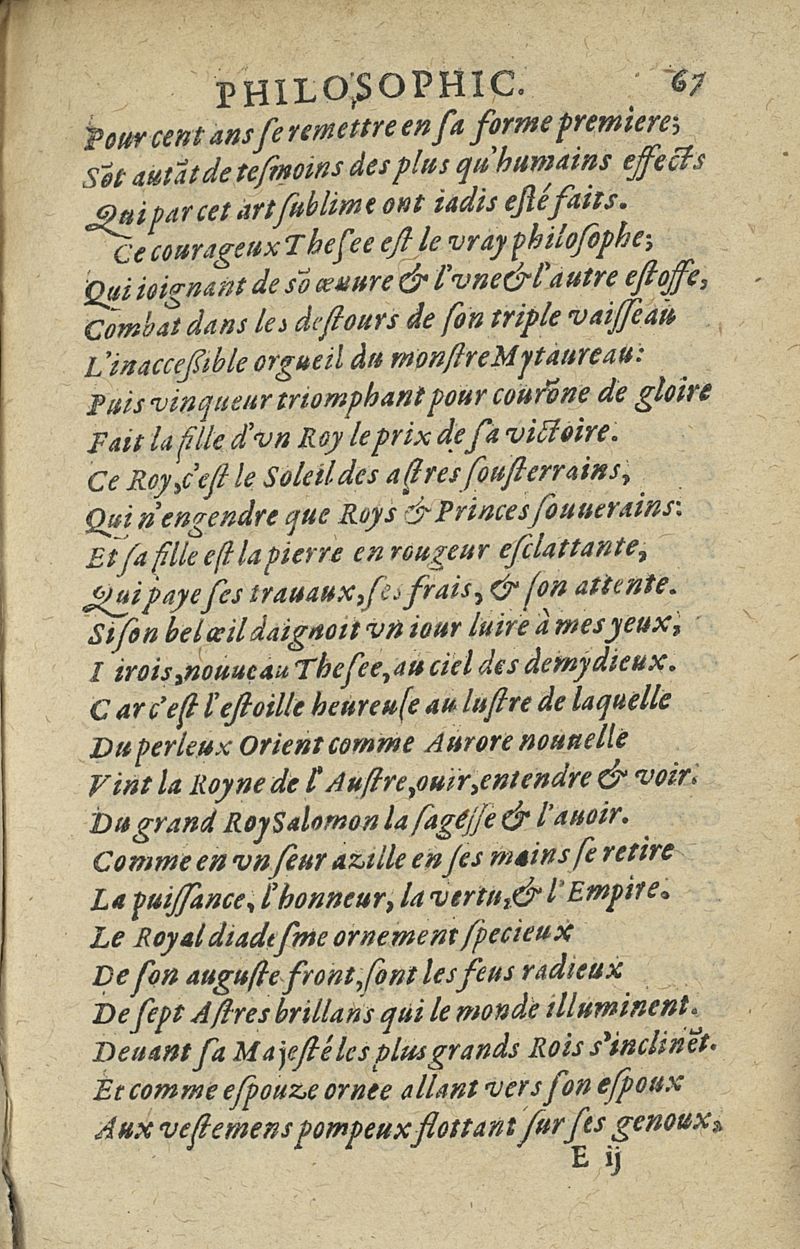 PHILOSOPHIC. 67
Pour cent ans ſe remettre en ſa forme premiere;
Sõt autãt de teſmoins des plus qu'humains effects
Qui par cet art ſublime ont iadis eſté faits.
Ce courageux Theſee eſt le vray philoſophe;
Qui ioignant de sõ œuure & l'vne & l'autre eſtoffe,
Combat dans les deſtours de ſon triple vaiſſeau
L'inacceſsible orgueil du monſtre Mytaureau:
Puis vinqueur triomphant pour courõne de gloire
Fait la fille d'vn Roy le prix de ſa victoire.
Ce Roy, c'eſt le Soleil des aſtres ſouſterrains,
Qui n'engendre que Roys & Princes ſouuerains:
Et ſa fille eſt la pierre en rougeur eſclattante,
Qui paye ſes trauaux, ſes frais, & ſon attente.
Si ſon bel œil daignoit vn iour luire à mes yeux,
I irois, nouueau Theſee, au ciel des demydieux.
Car c'eſt l'eſtoille heureuſe au luſtre de laquelle
Du perleux Orient comme Aurore nouuelle
Vint la Royne de l'Auſtre, ouir, entendre & voir.
Du grand Roy Salomon la ſageſſe & l'auoir.
Comme en vn ſeur azille en ſes mains ſe retire
La puiſſance, l'honneur, la vertu, & l'Empire.
Le Royal diadeſme ornement ſpecieux
De ſon auguſte front, ſont les feus radieux
De ſept Aſtres brillans qui le monde illuminent.
Deuant ſa Majeſté les plus grands Rois s'inclinẽt.
Et comme eſpouze ornee allant vers ſon eſpoux
Aux veſtemens pompeux flottant ſur ſes genoux,
E ij